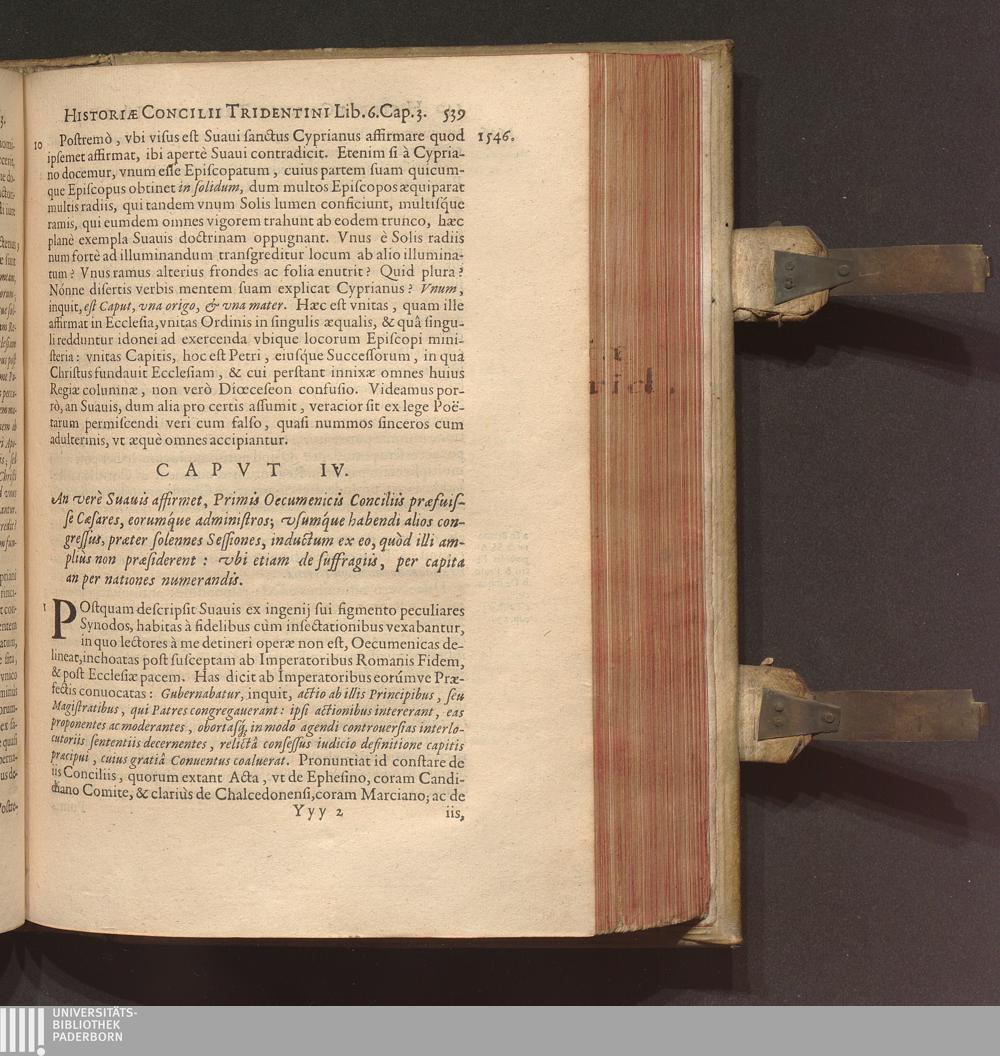 HISTORIÆ CONCILII TRIDENTINI Lib. 6. Cap. 3. 539
1546.
10 Postremò, vbi visus est Suaui sanctus Cyprianus affirmare quod
ipsemet affirmat, ibi apertè Suaui contradicit. Etenim si à Cypria-
no docemur, vnum esse Episcopatum, cuius partem suam quicum-
que Episcopus obtinet in solidum, dum multos Episcopos æquiparat
multis radiis, qui tandem vnum Solis lumen conficiunt, multisq́ue
ramis, qui eumdem omnes vigorem trahunt ab eodem trunco, hæc
planè exempla Suauis doctrinam oppugnant. Vnus è Solis radiis
num fortè ad illuminandum transgreditur locum ab alio illumina-
tum? Vnus ramus alterius frondes ac folia enutrit? Quid plura?
Nónne disertis verbis mentem suam explicat Cyprianus? Vnum,
inquit, est Caput, vna origo, & vna mater. Hæc est vnitas, quam ille
affirmat in Ecclesia, vnitas Ordinis in singulis æqualis, & quâ singu-
li redduntur idonei ad exercenda vbique locorum Episcopi mini-
steria: vnitas Capitis, hoc est Petri, eiusq́ue Successorum, in quâ
Christus fundauit Ecclesiam, & cui perstant innixæ omnes huius
Regiæ columnæ, non verò Diœceseon confusio. Videamus por-
rò, an Suauis, dum alia pro certis assumit, veracior sit ex lege Poë-
tarum permiscendi veri cum falso, quasi nummos sinceros cum
adulterinis, vt æquè omnes accipiantur.
CAPVT IV.
An verè Suauis affirmet, Primis Oecumenicis Conciliis præfuis-
se Cæsares, eorumq́ue administros; vsumq́ue habendi alios con-
gressus, præter solennes Sessiones, inductum ex eo, quòd illi am-
pliùs non præsiderent: vbi etiam de suffragiis, per capita
an per nationes numerandis.
1 POstquam descripsit Suauis ex ingenij sui figmento peculiares
Synodos, habitas à fidelibus cùm insectationibus vexabantur,
in quo lectores à me detineri operæ non est, Oecumenicas de-
lineat, inchoatas post susceptam ab Imperatoribus Romanis Fidem,
& post Ecclesiæ pacem. Has dicit ab Imperatoribus eorúmve Præ-
fectis conuocatas: Gubernabatur, inquit, actio ab illis Principibus, seu
Magistratibus, qui Patres congregauerant: ipsi actionibus intererant, eas
proponentes ac moderantes, obortasq́; in modo agendi controuersias interlo-
cutoriis sententiis decernentes, relictâ consessus iudicio definitione capitis
præcipui, cuius gratiâ Conuentus coaluerat. Pronuntiat id constare de
iis Conciliis, quorum extant Acta, vt de Ephesino, coram Candi-
diano Comite, & clariùs de Chalcedonensi, coram Marciano; ac de
Yyy 2 iis,
UNIVERSITÄTS-
BIBLIOTHEK
PADERBORN